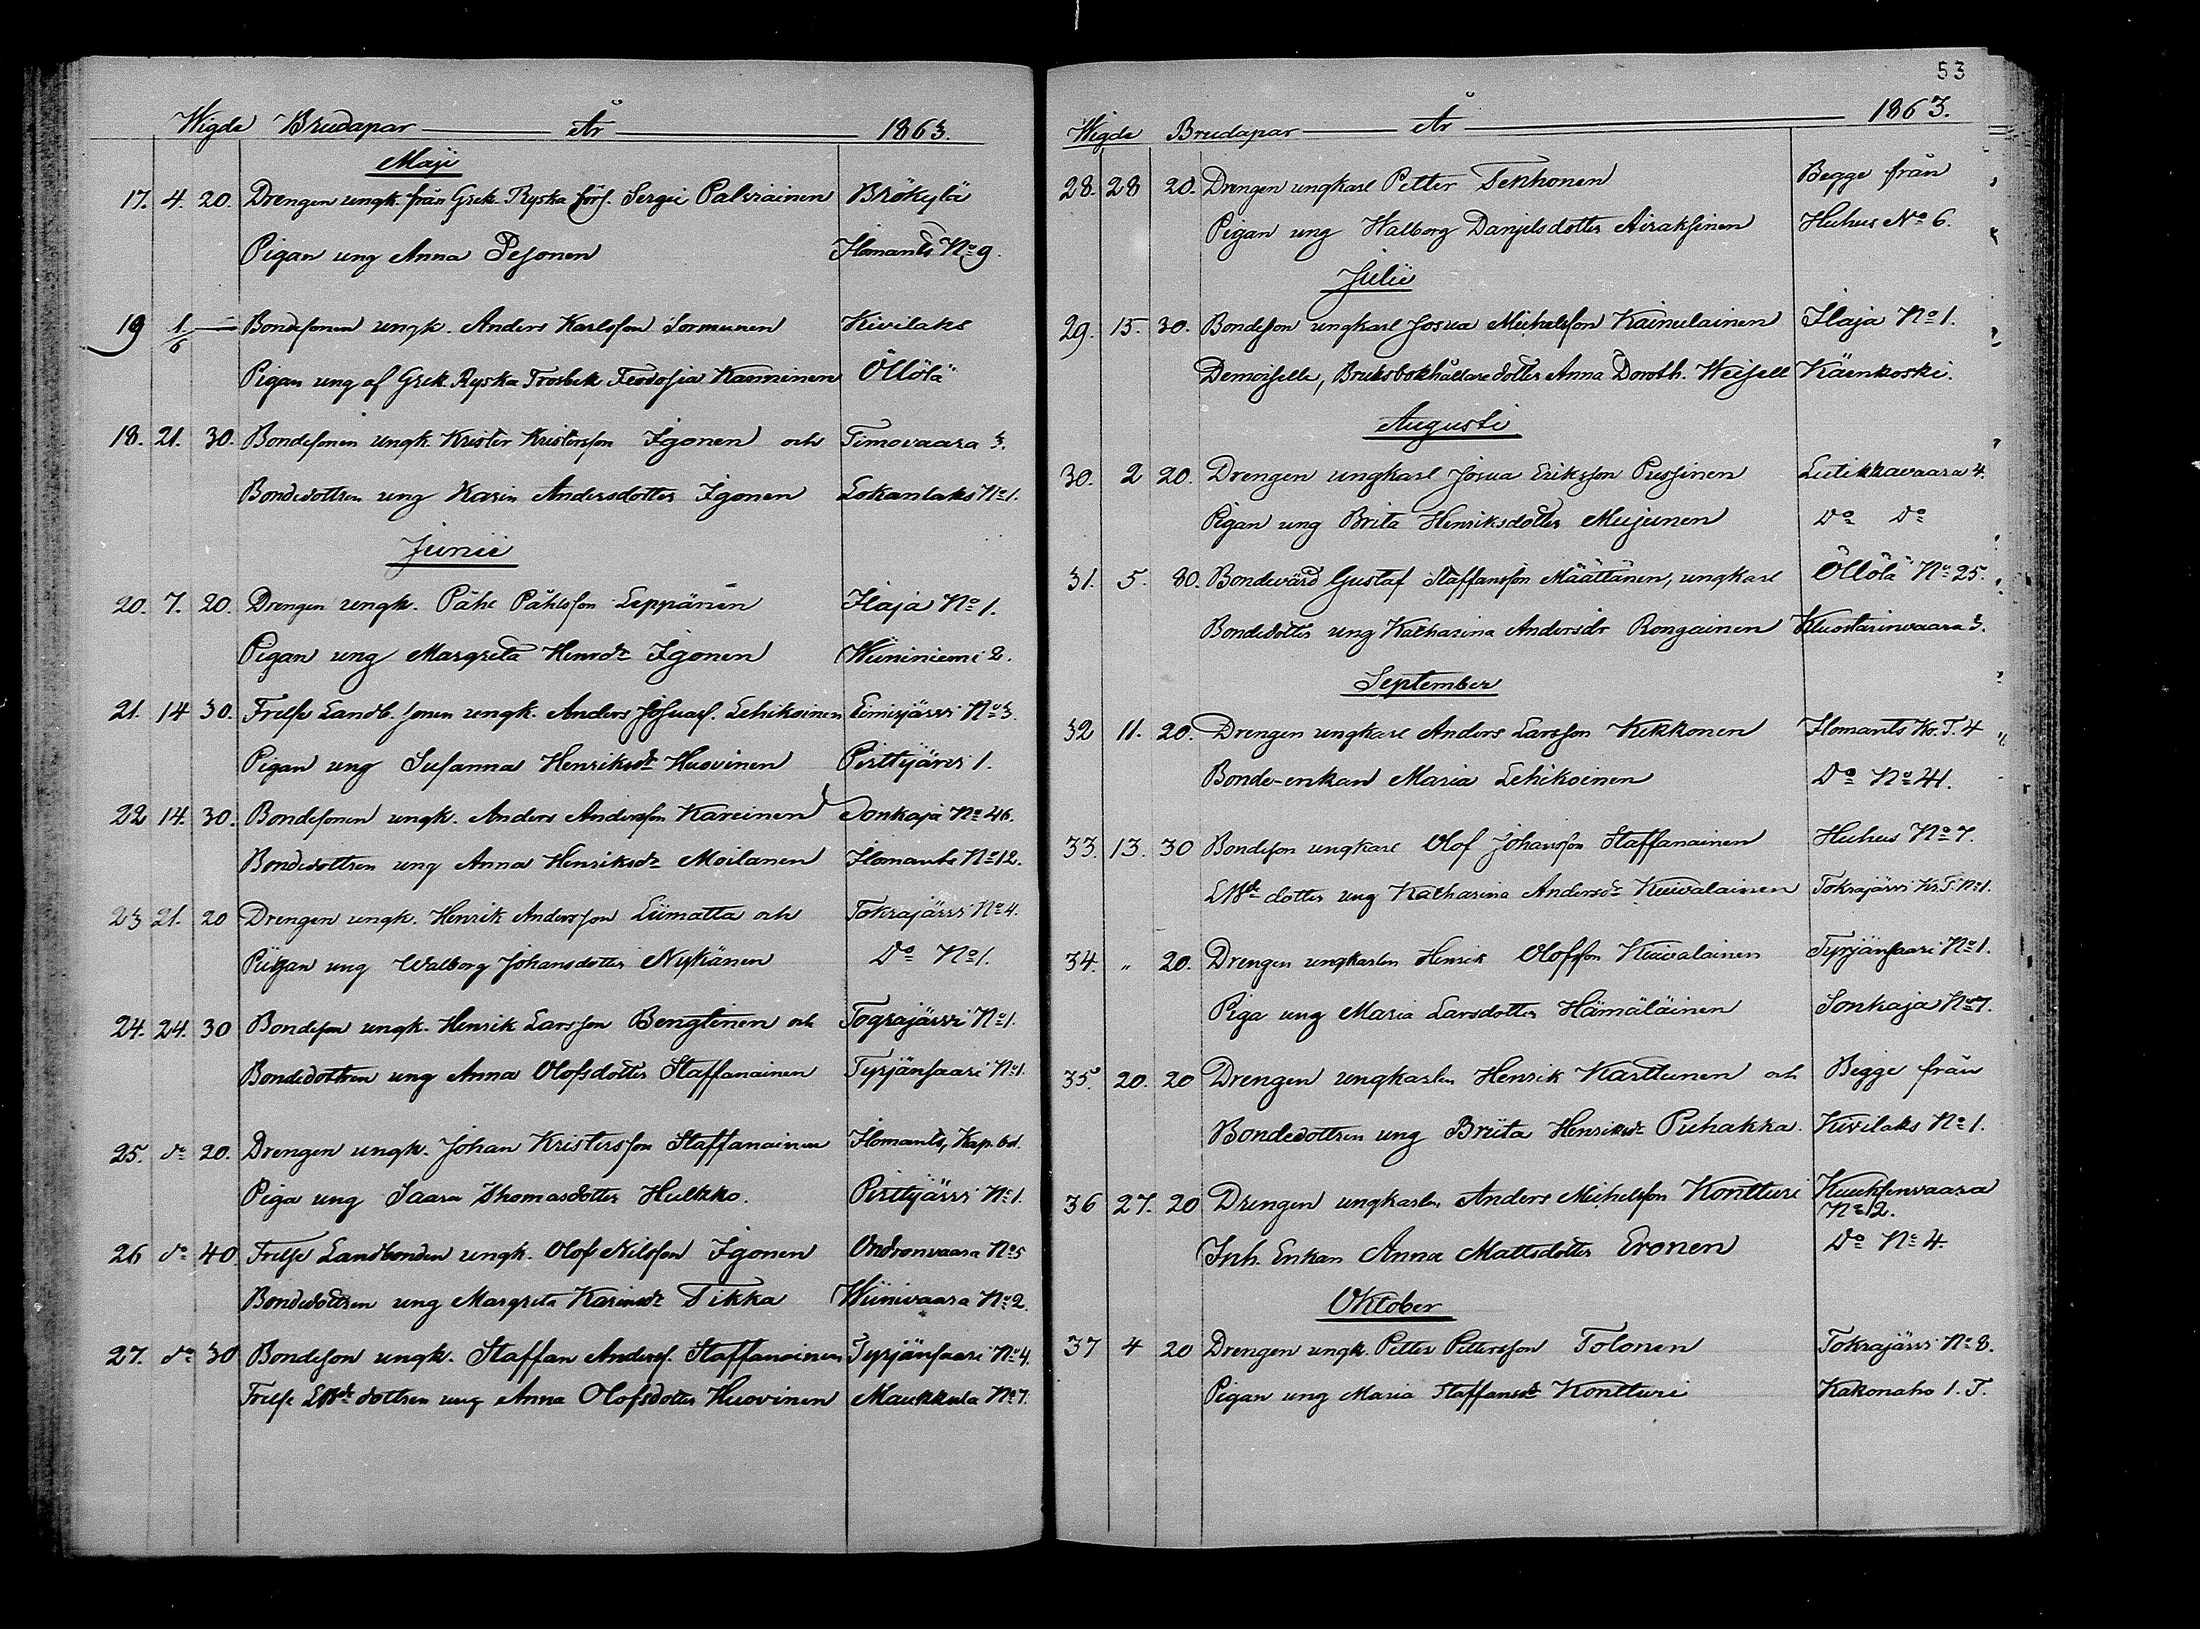 Wigde Brudapar År 1863.
Maji
17. 4. 20. Drengen ungk. från Grek. Ryska förs. Sergei Palviainen Brökylä
Pigan ung Anna Pesonen Ilomants No 9.
19 1/6 — Bondesonen ungk. Anders Karlsson Sormunen Kivilaks
Pigan ung af Grek Ryska Trosbek Feodosia Kanninen Öllölä
18. 21. 30. Bondesonen ungk. Krister Kristersson Igonen och Timovaara 3.
Bondedottren ung Karin Andersdotter Igonen Lokanlaks No 1.
Junii
20. 7. 20. Drengen ungk. Påhl Påhlsson Leppänen Ilaja No 1.
Pigan ung Margreta Henrdr Igonen Wiininiemi 2.
21. 14 30. Frelse Landb. sonen ungk. Anders Josuas. Lehikoinen Eimisjärvi No 3.
Pigan ung Susanna Henriksdr Huovinen Pirttijärvi 1.
22 14. 30. Bondesonen ungk. Anders Andersson Kareinen Sonkaja No 46.
Bondedottren ung Anna Henriksdr Moilanen Ilomants No 12.
23 21. 20 Drengen ungk. Henrik Andersson Liimatta och Tokrajärvi No 4.
Piigan ung Walborg Johansdotter Nykänen Do No 1.
24. 24. 30 Bondeson ungk. Henrik Larsson Bengtinen och Tograjärvi No 1.
Bondedottren ung Anna Olofsdotter Staffanainen Tyrjänsaari No 1.
25. do 20. Drengen ungk. Johan Kristersson Staffanainen Ilomants, Kap. bd.
Piga ung Saara Thomasdotter Hulkko. Pirttijärvi No 1.
26 do 40. Frelse Landbonden ungk. Olof Nilsson Igonen Ondronvaara No 5
Bondedottren ung Margreta Karinsdr Tikka Wiinivaara No 2.
27. do 30 Bondeson ungk. Staffan Anderss. Staffanainen Tyrjänsaari No 4.
Frelse LBde dottren ung Anna Olofsdotter Huovinen Maukkula No 7.
53
Wigde Brudapar År 1863.
28. 28 20. Drengen ungkarl Petter Tenhonen Begge från
Pigan ung Walborg Danjelsdotter Airaksinen Huhus No 6.
Julii
29. 15. 30. Bondeson ungkarl Josua Michelsson Kainulainen Ilaja No 1.
Demoiselle, Bruksbokhållare dotter Anna Doroth. Weisell Käenkoski.
Augusti
30. 2 20. Drengen ungkarl Josua Eriksson Pussinen Lutikkavaara 4.
Pigan ung Brita Henriksdotter Mujunen Do Do
31. 5. 80. Bondevärd Gustaf Staffansson Määttänen, ungkarl Öllölä No 25.
Bondedotter ung Katharina Andersdr Rongainen Kluostarinvaara 3.
September
32 11. 20. Drengen ungkarl Anders Larsson Kekkonen Ilomants Kr. T. 4
Bonde-enkan Maria Lehikoinen Do No 41.
33. 13. 30 Bondeson ungkarl Olof Johansson Staffanainen Huhus No 7.
LBde dotter ung Katharina Andersdr Kuivalainen Tokrajärvi Kr. T. No 1.
34. " 20. Drengen ungkarlen Henrik Olofsson Kuivalainen Tyrjänsaari No 1.
Piga ung Maria Larsdotter Hämäläinen Sonkaja No 7.
35. 20. 20 Drengen ungkarlen Henrik Karttunen och Begge från
Bondedottren ung Briita Henriksdr Puhakka. Kivilaks No 1.
36 27. 20 Drengen ungkarlen Anders Michelsson Kontturi Kuuksenvaara
No 12.
Inh. Enkan Anna Mattsdotter Eronen Do No 4.
Oktober
37 4 20 Drengen ungk. Petter Pettersson Tolonen Tokrajärvi No 8.
Pigan ung Maria Staffansdr Kontturi Kakonaho 1. T.